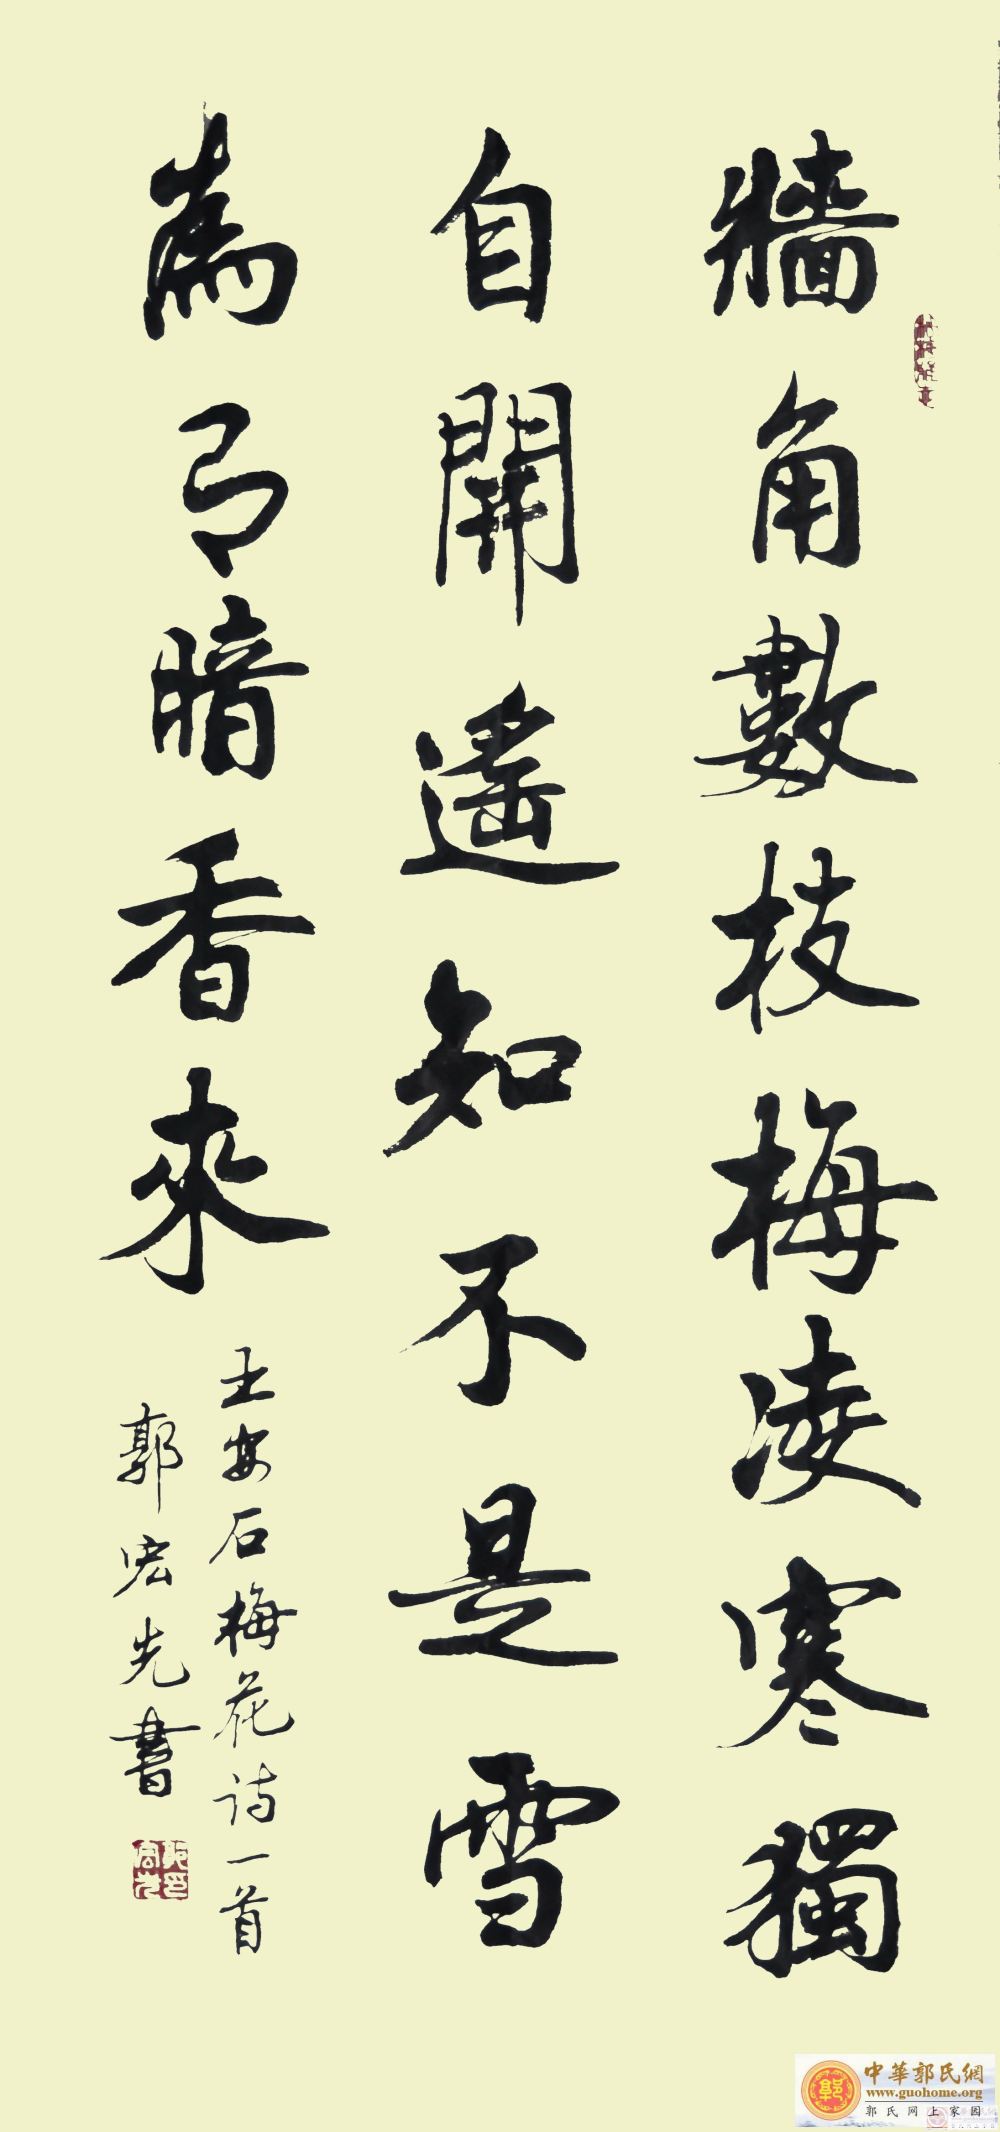 牆角數枝梅凌寒獨
自開遙知不是雪
為有暗香來
王安石梅花诗一首
郭宏先書
中華郭氏網
www.guohome.org
郭氏网上家园